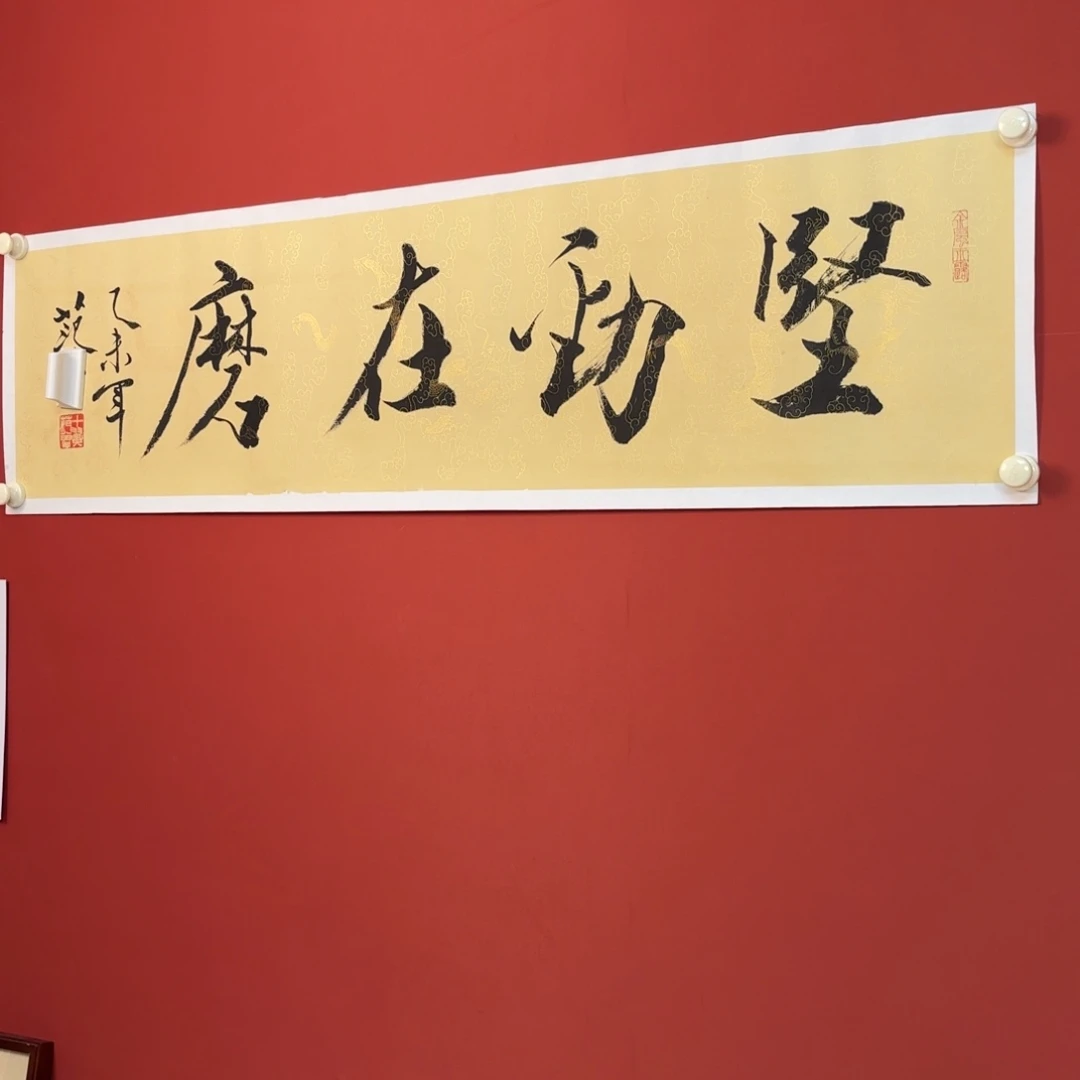 堅勁在磨
乙未年
范